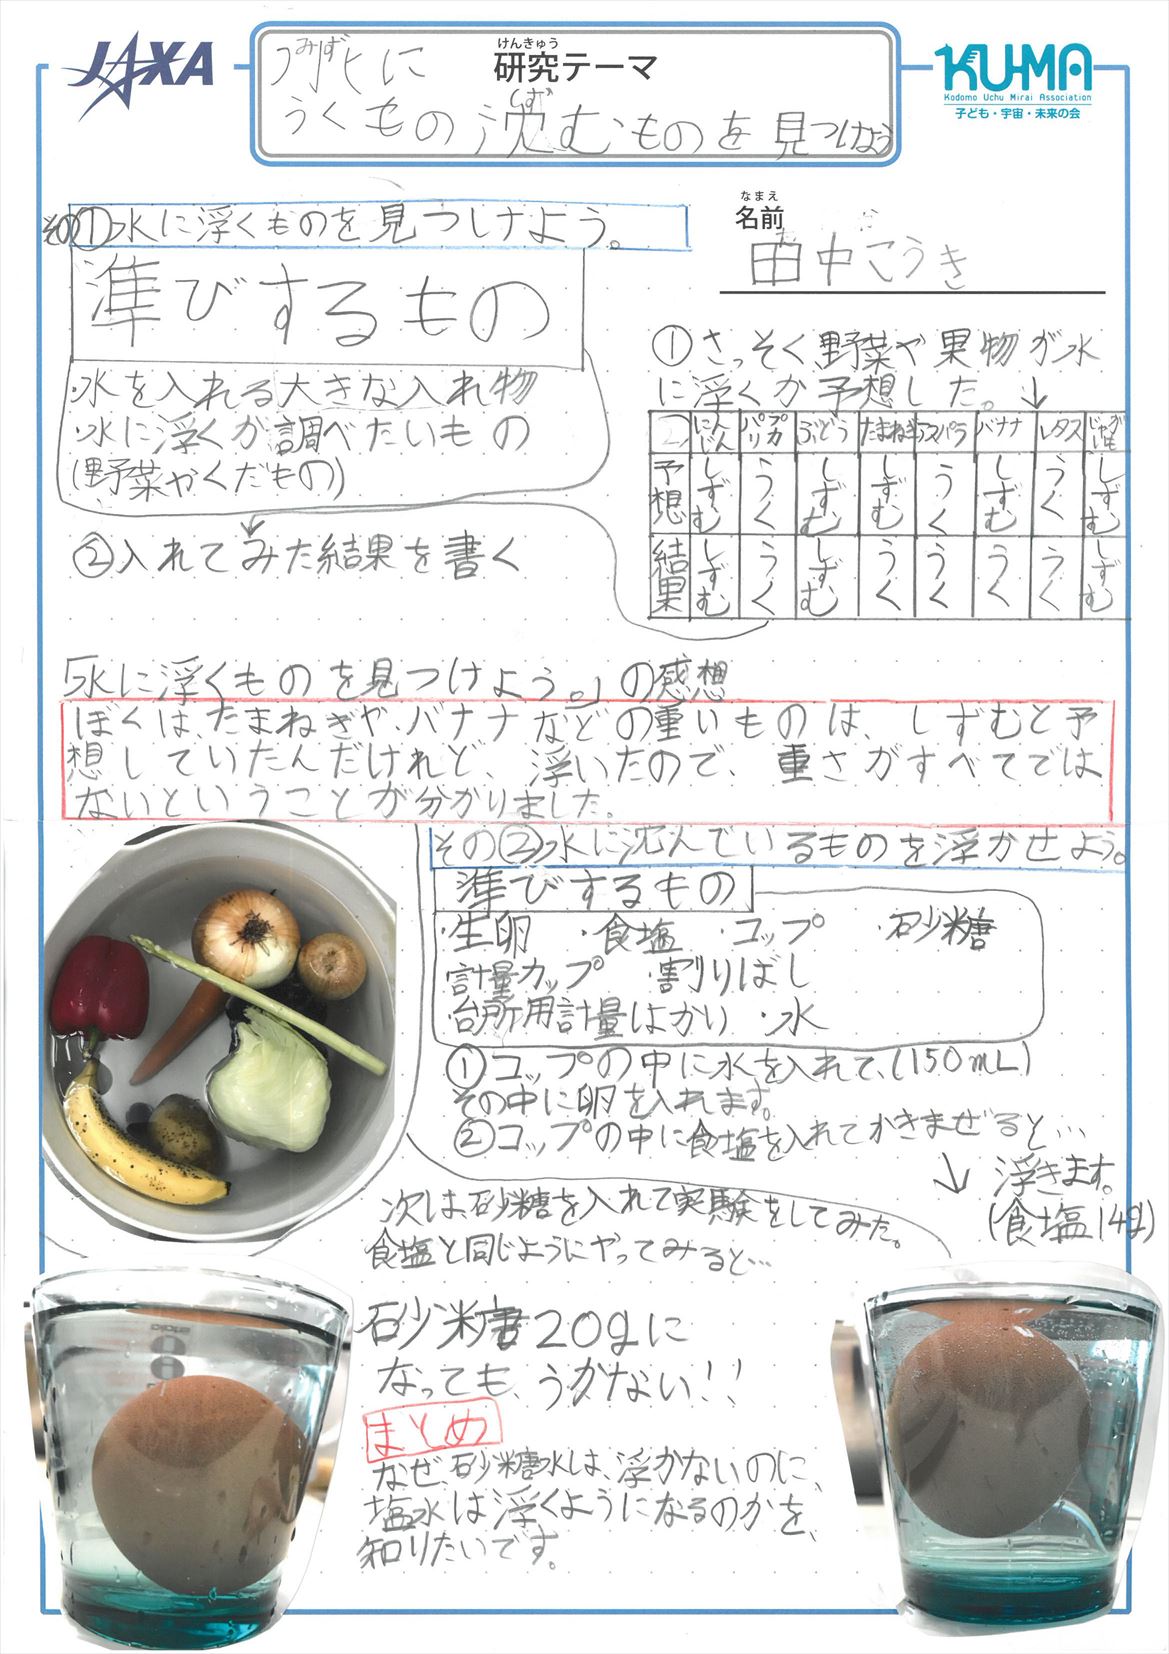 JAXA
けんきゅう
研究テーマ
みず
水に
しず
うくもの沈むものを見つけよう
KU-MA
Kodomo Uchu Mirai Association
子ども・宇宙・未来の会
なまえ
名前
田中こうき
その①水に浮くものを見つけよう。
準びするもの
・水を入れる大きな入れ物
・水に浮くか調べたいもの
(野菜やくだもの)
①さっそく、野菜や果物が水
に浮くか予想した。↓
② にんじん パプリカ ぶどう たまねぎ アスパラ バナナ レタス じゃがいも
予想 しずむ うく しずむ しずむ うく しずむ うく しずむ
結果 しずむ うく しずむ うく うく うく うく しずむ
②入れてみた結果を書く
「水に浮くものを見つけよう。」の感想
ぼくは、たまねぎや、バナナなどの重いものは、しずむと予
想していたんだけれど、浮いたので、重さがすべてでは
ないということが分かりました。
その②水に沈んでいるものを浮かせよう。
準びするもの
・生卵 ・食塩 ・コップ ・砂糖
計量カップ ・割りばし
・台所用計量はかり ・水
①コップの中に水を入れて、(150mL)
その中に卵を入れます。
②コップの中に食塩を入れてかきまぜると…
↓ 浮きます。
(食塩14g)
次は、砂糖を入れて実験をしてみた。
食塩と同じようにやってみると…
砂糖20gに
なっても、うかない!!
まとめ
なぜ、砂糖水は、浮かないのに、
塩水は浮くようになるのかを、
知りたいです。